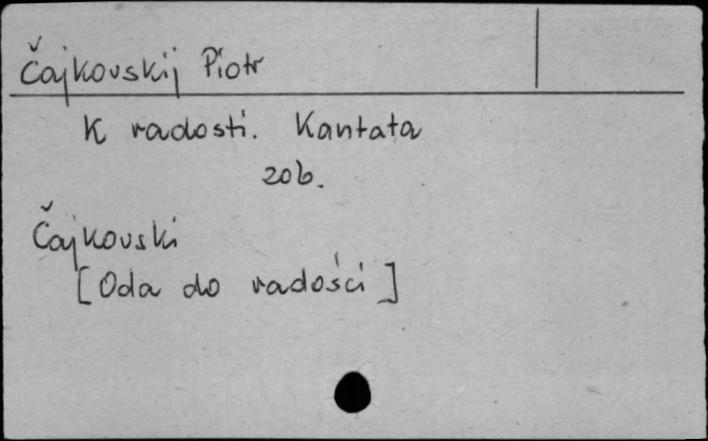 Čajkovskij Piotr
K radosti. Kantata
zob.
Čajkovski
[Oda do radości]